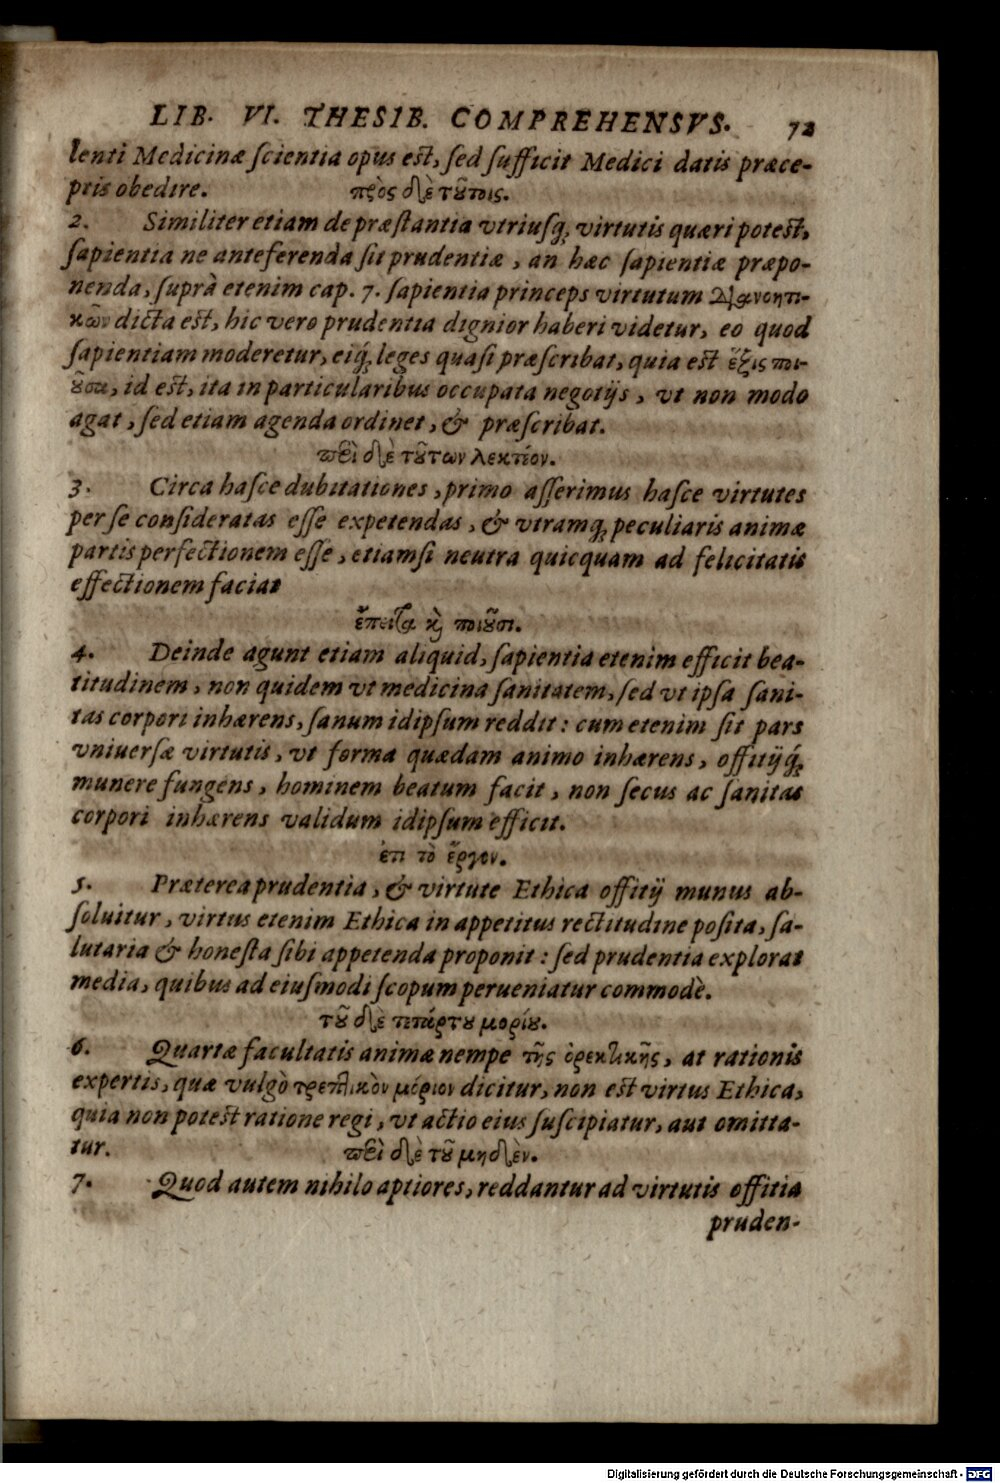 LIB. VI. THESIB. COMPREHENSVS. 72
lenti Medicinæ ſcientia opus eſt, ſed ſufficit Medici datis præce-
ptis obedire. πρὸς δὲ τȣ́τοις.
2. Similiter etiam de præſtantia vtriuſq; virtutis quæri poteſt,
ſapientia ne anteferenda ſit prudentiæ, an hæc ſapientiæ præpo-
nenda, ſuprà etenim cap. 7. ſapientia princeps virtutum διανοητι-
κῶν dicta eſt, hic vero prudentia dignior haberi videtur, eo quod
ſapientiam moderetur, eiq́; leges quaſi præſcribat, quia eſt ἕξις ποι-
ȣ͂σα, id eſt, ita in particularibus occupata negotijs, vt non modo
agat, ſed etiam agenda ordinet, & præſcribat.
περὶ δὲ τȣ́των λεκτέον.
3. Circa haſce dubitationes, primo aſſerimus haſce virtutes
per ſe conſideratas eſſe expetendas, & vtramq; peculiaris animæ
partis perfectionem eſſe, etiamſi neutra quicquam ad felicitatis
effectionem faciat
ἔπειτα καὶ ποιȣ͂σι.
4. Deinde agunt etiam aliquid, ſapientia etenim efficit bea-
titudinem, non quidem vt medicina ſanitatem, ſed vt ipſa ſani-
tas corpori inhærens, ſanum idipſum reddit: cum etenim ſit pars
vniuerſæ virtutis, vt forma quædam animo inhærens, offitijq́;
munere fungens, hominem beatum facit, non ſecus ac ſanitas
corpori inhærens validum idipſum efficit.
ἐπι τὸ ἔργον.
5. Præterea prudentia, & virtute Ethica offitij munus ab-
ſoluitur, virtus etenim Ethica in appetitus rectitudine poſita, ſa-
lutaria & honeſta ſibi appetenda proponit: ſed prudentia explorat
media, quibus ad eiuſmodi ſcopum perueniatur commodè.
τȣ͂ δὲ τετάρτȣ μορίȣ.
6. Quartæ facultatis animæ nempe τῆς ὀρεκτικῆς, at rationis
expertis, quæ vulgò τρεπτικὸν μόριον dicitur, non eſt virtus Ethica,
quia non poteſt ratione regi, vt actio eius ſuſcipiatur, aut omitta-
tur. περὶ δὲ τȣ͂ μηδὲν.
7. Quod autem nihilo aptiores, reddantur ad virtutis offitia
pruden-
Digitalisierung gefördert durch die Deutsche Forschungsgemeinschaft - DFG